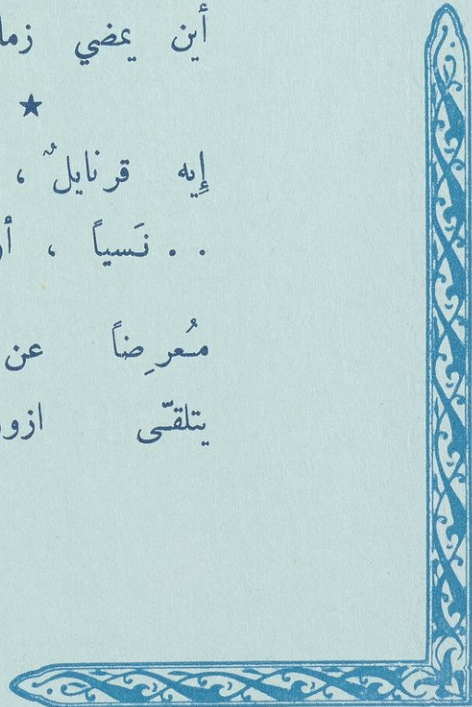 أين يمضي زما
★
إِيه قرنايلٌ ،
. . نَسياً ، أ
مُعرِضاً عن
يتلقّى ازو